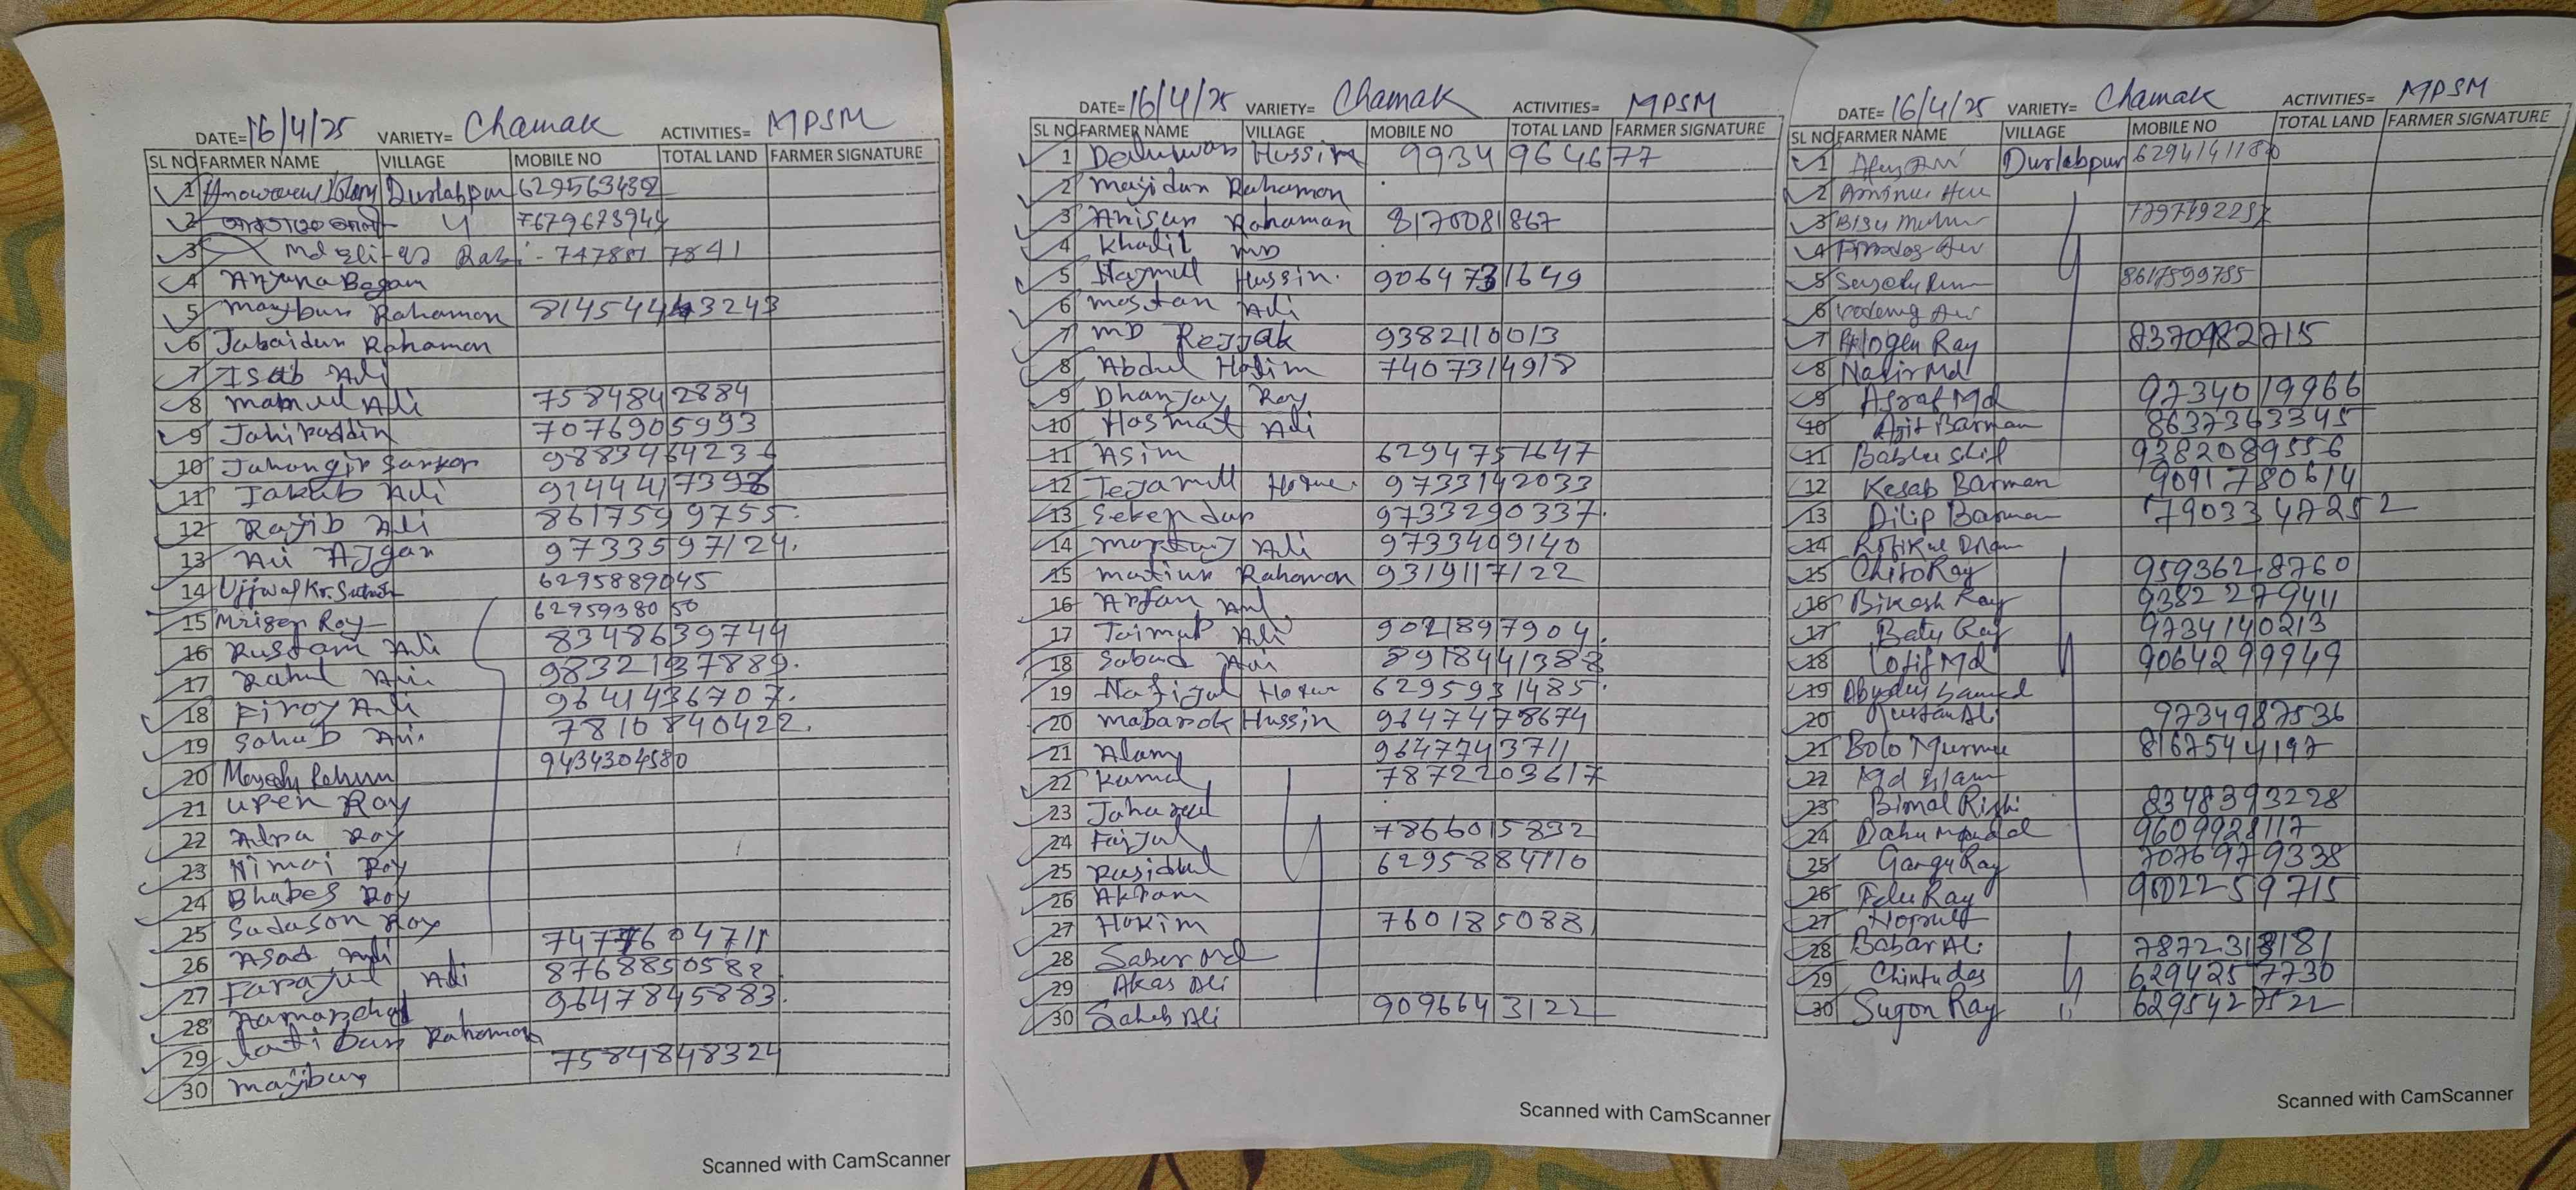 DATE= 16/4/25 VARIETY= Chamak ACTIVITIES= MPSM
SL NO FARMER NAME VILLAGE MOBILE NO TOTAL LAND FARMER SIGNATURE
1 Durlabpur 629563438
2 7679673944
3 Md Rabi - 7841
4 Anjuna Begam
5 Majibur Rahaman
6 Jabaidur Rahaman
7 Isab Ali
8 Mamud Ali 7584842884
9 Jahiruddin 7076905993
10 Jahangir Sarkar 9883464236
11 Jakub Ali
12 Rajib Ali 8617599755.
13 Ali Ajgar 9733597124.
14 Ujjwal Kr. 6295889045
15 Mrigen Roy 6295938050
16 Rustam Ali 8348639744
17 Rahul Ali 9832137889.
18 Firoj Ali 9641436707.
19 Sohab Ali 7810840422.
20 9434304580
21 Upen Roy
22 Alpa Roy
23 Nimai Roy
24 Bhabes Roy
25 Sudason Roy
26 Asad Ali
27 Farajul Ali 8768850582
28 9647845883.
29 Rahaman
30 Majibur 7584848324
Scanned with CamScanner
DATE= 16/4/25 VARIETY= Chamak ACTIVITIES= MPSM
SL NO FARMER NAME VILLAGE MOBILE NO TOTAL LAND FARMER SIGNATURE
1 Deluwar Hussin 9934964677
2 Majidur Rahaman
3 Anisur Rahaman 8170081867
4 Khalil MD
5 Najmul Hussin. 9064731649
6 Mostan Ali
7 MD Rejjak 9382110013
8 Abdul Halim 7407314918
9 Dhanjay Roy
10 Hosmat Ali
11 Asim 6294751647
12 Tejamul Hoque. 9733142033
13 Sekendar 9733290337.
14 Ali 9733409140
15 Matiur Rahaman 9319117122
16 Arfan
17 Taimur Ali 9021897904.
18 Sabad Ali 8918441388
19 Nafijul Hoque 6295931485.
20 Mabarok Hussin 9647478674
21 Alam 9647743711
22 Kamal 7872203617
23
24 Faijul 7866015832
25 Rasidul 6295884110
26 Akram
27 Hakim 760185088
28 Saber Md
29 Akas Ali
30 Saheb Ali 9096643122
Scanned with CamScanner
DATE= 16/4/25 VARIETY= Chamak ACTIVITIES= MPSM
SL NO FARMER NAME VILLAGE MOBILE NO TOTAL LAND FARMER SIGNATURE
1 Durlabpur
2
3
4
5 8617599755
6
7 Ray 8370982715
8 Nasir Md
9 Asraf Md 9734019966
10 Ajit Barman 8637363345
11 Bablu 9382089556
12 Kesab Barman 9091780614
13 Dilip Barman 7903347252
14
15 Chito Ray 9593628760
16 Bikash Ray 9382279411
17 Batu Ray 9734140213
18 Lotif Md 9064299949
19
20 Rustam Ali 9734987536
21 Bolo Murmu 8167544197
22 Md Islam
23 Bimal Rishi 8348393228
24 9609928117
25 Ray 7076979338
26 Ray
27
28 Babar Ali 7872318181
29 Chintu das 6294257730
30 Sugon Ray 6295427522
Scanned with CamScanner